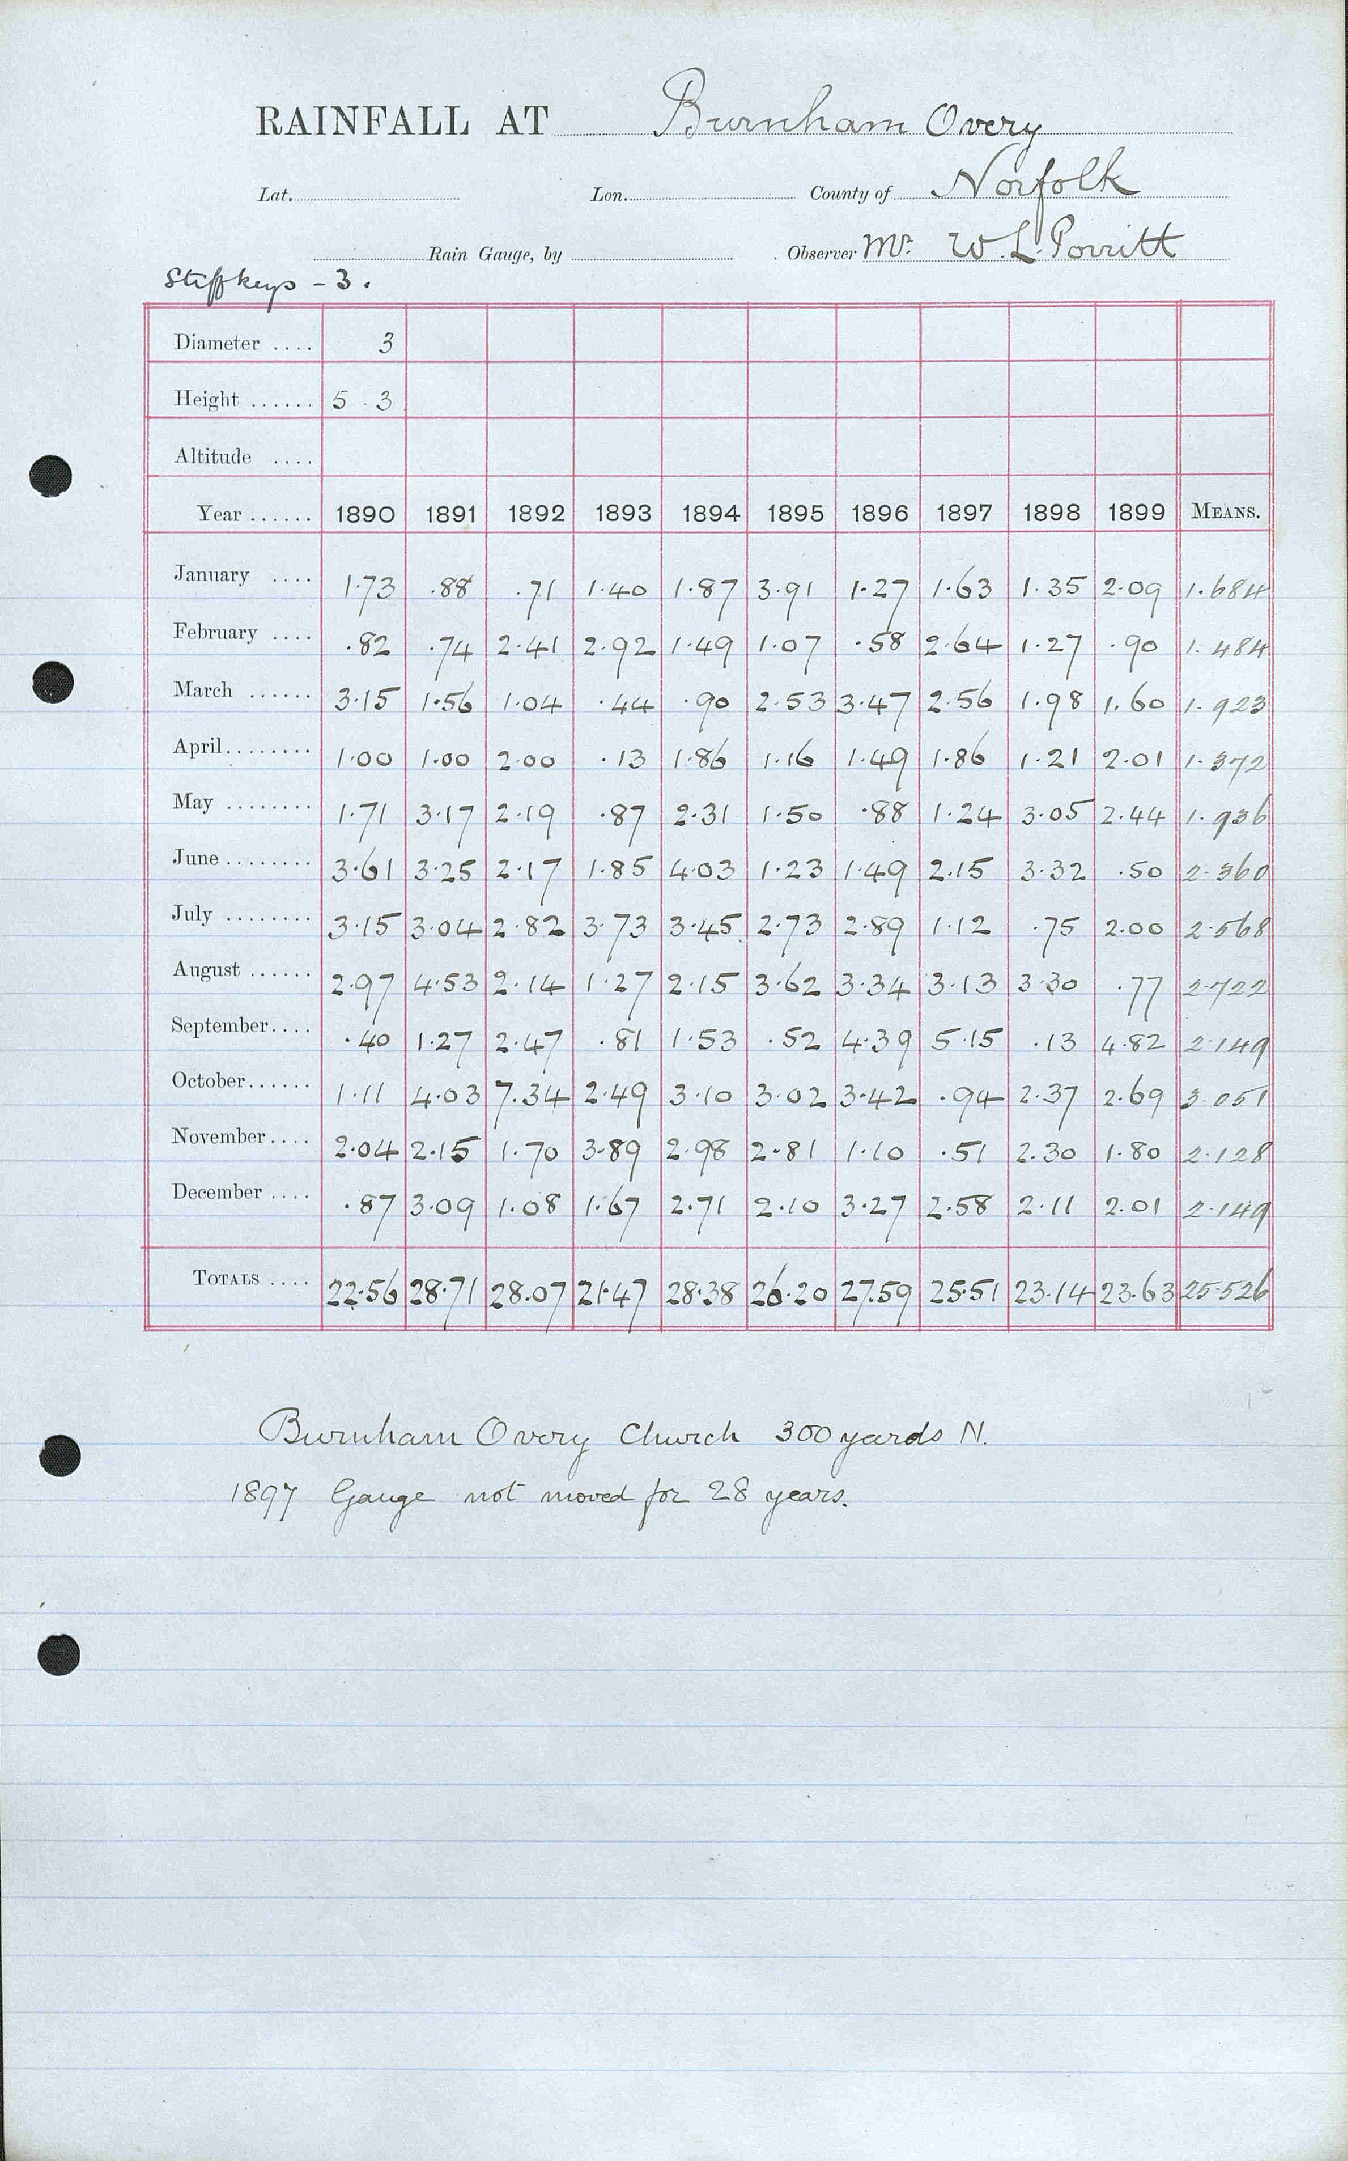 RAINFALL AT Burnham Overy
Lat. Lon. County of Norfolk
Rain Gauge, by Observer Mr. W. L. Porritt
Stiffkeys - 3.
Diameter .... 3
Height ...... 5 - 3
Altitude ....
Year ...... 1890 1891 1892 1893 1894 1895 1896 1897 1898 1899 MEANS.
January .... 1.73 .88 .71 1.40 1.87 3.91 1.27 1.63 1.35 2.09 1.684
February .... .82 .74 2.41 2.92 1.49 1.07 .58 2.64 1.27 .90 1.484
March ...... 3.15 1.56 1.04 .44 .90 2.53 3.47 2.56 1.98 1.60 1.923
April ........ 1.00 1.00 2.00 .13 1.86 1.16 1.49 1.86 1.21 2.01 1.372
May ........ 1.71 3.17 2.19 .87 2.31 1.50 .88 1.24 3.05 2.44 1.936
June ........ 3.61 3.25 2.17 1.85 4.03 1.23 1.49 2.15 3.32 .50 2.360
July ........ 3.15 3.04 2.82 3.73 3.45 2.73 2.89 1.12 .75 2.00 2.568
August ...... 2.97 4.53 2.14 1.27 2.15 3.62 3.34 3.13 3.30 .77 2.722
September .... .40 1.27 2.47 .81 1.53 .52 4.39 5.15 .13 4.82 2.149
October ...... 1.11 4.03 7.34 2.49 3.10 3.02 3.42 .94 2.37 2.69 3.051
November .... 2.04 2.15 1.70 3.89 2.98 2.81 1.10 .51 2.30 1.80 2.128
December .... .87 3.09 1.08 1.67 2.71 2.10 3.27 2.58 2.11 2.01 2.149
TOTALS .... 22.56 28.71 28.07 21.47 28.38 26.20 27.59 25.51 23.14 23.63 25.526
Burnham Overy Church 300 yards N.
1897 Gauge not moved for 28 years.